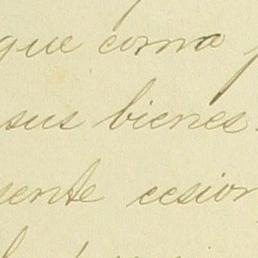 que como
sus bienes.
sente cesion